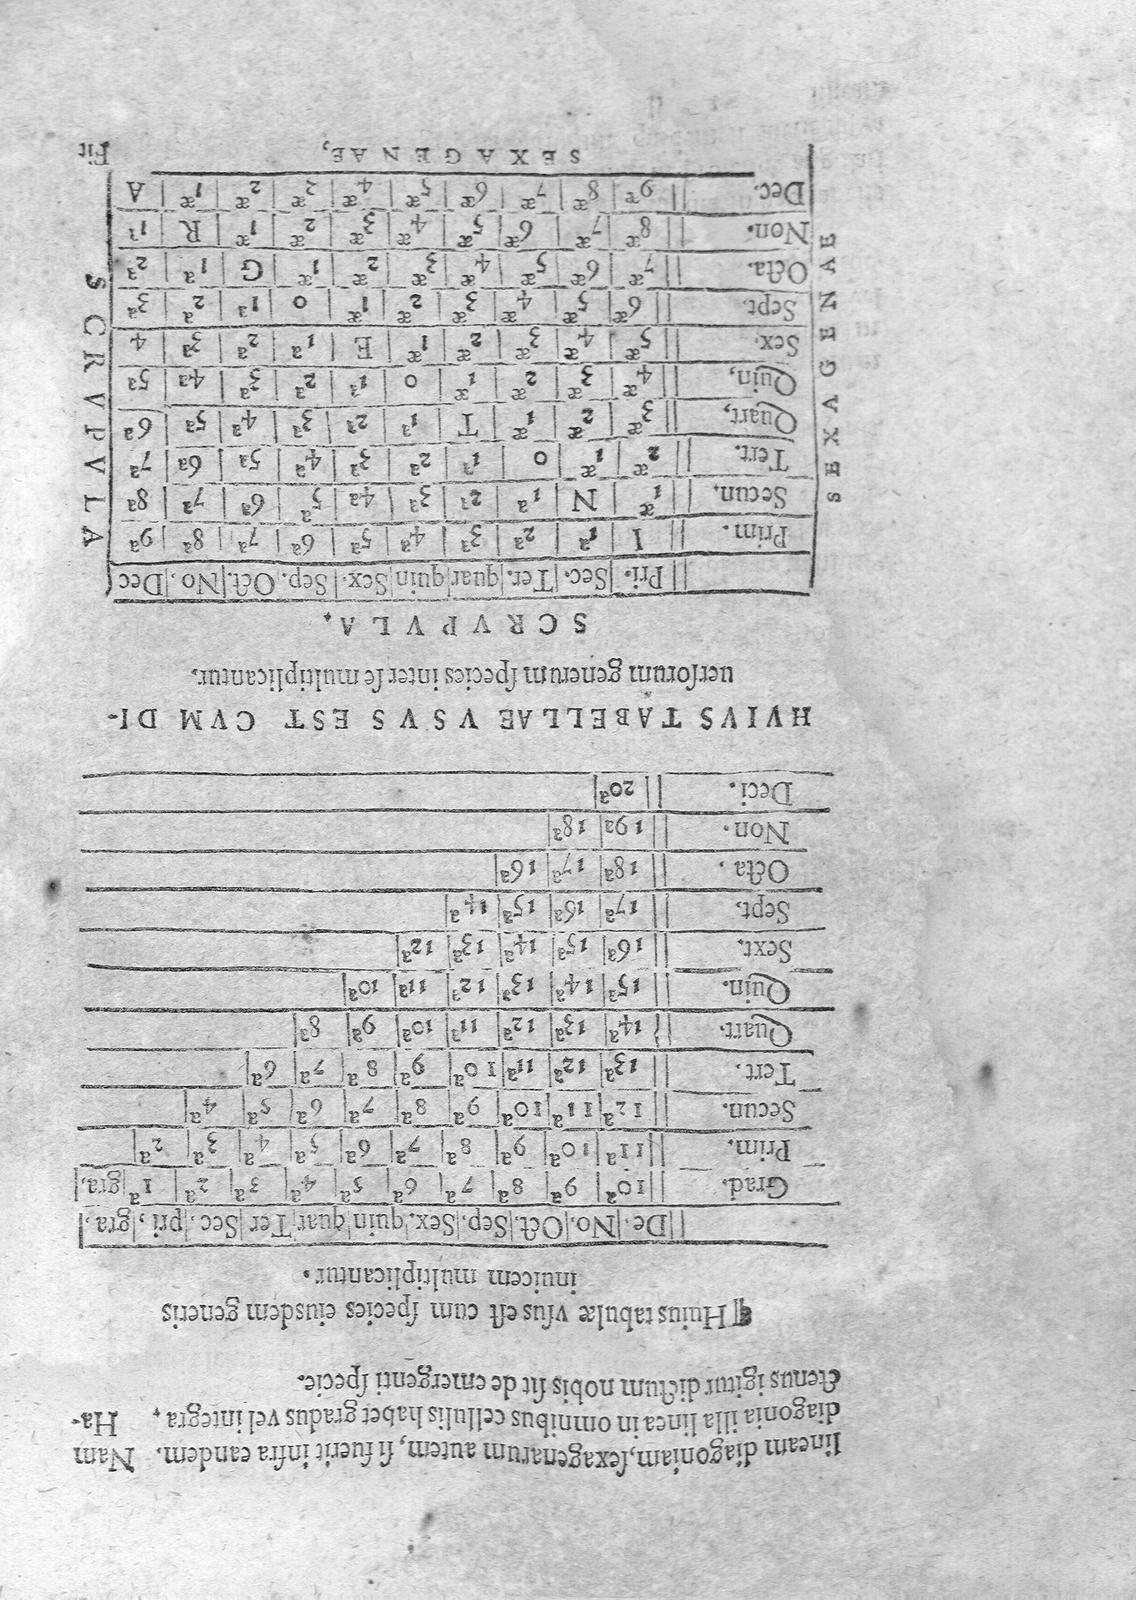 lineam diagoniam, sexagenarum autem, si fuerit infra eandem. Nam
diagonia illa linea in omnibus cellulis habet gradus vel integra, Ha-
ctenus igitur dictum nobis sit de emergenti specie.
¶ Huius tabulæ vsus est cum species eiusdem generis
inuicem multiplicantur.
De. No. Oct. Sep. Sex. quin quar Ter Sec. pri, gra.
Grad. 10a 9a 8a 7a 6a 5a 4a 3a 2a 1a gra.
Prim. 11a 10a 9a 8a 7a 6a 5a 4a 3a 2a
Secun. 12a 11a 10a 9a 8a 7a 6a 5a 4a
Tert. 13a 12a 11a 10a 9a 8a 7a 6a
Quart. 14a 13a 12a 11a 10a 9a 8a
Quin. 15a 14a 13a 12a 11a 10a
Sext. 16a 15a 14a 13a 12a
Sept. 17a 16a 15a 14a
Octa. 18a 17a 16a
Non. 19a 18a
Deci. 20a
HVIVS TABELLAE VSVS EST CVM DI-
uersorum generum species inter se multiplicantur.
SCRVPVLA.
Pri. Sec. Ter. quar quin Sex. Sep. Oct. No. Dec
Prim. I 1a 2a 3a 4a 5a 6a 7a 8a 9a
Secun. 1æ N 1a 2a 3a 4a 5a 6a 7a 8a
Tert. 2æ 1æ 0 1a 2a 3a 4a 5a 6a 7a
Quart, 3æ 2æ 1æ T 1a 2a 3a 4a 5a 6a
Quin, 4æ 3æ 2æ 1æ 0 1a 2a 3a 4a 5a
Sex. 5æ 4æ 3æ 2æ 1æ E 1a 2a 3a 4
Sept. 6æ 5æ 4æ 3æ 2æ 1æ 0 1a 2a 3a
Octa. 7æ 6æ 5æ 4æ 3æ 2æ 1æ G 1a 2a
Non. 8æ 7æ 6æ 5æ 4æ 3æ 2æ 1æ R 1a
Dec. 9æ 8æ 7æ 6æ 5æ 4æ 2æ 2æ 1æ A
SEXAGENAE
SCRVPVLA
SEXAGENAE,
Fit